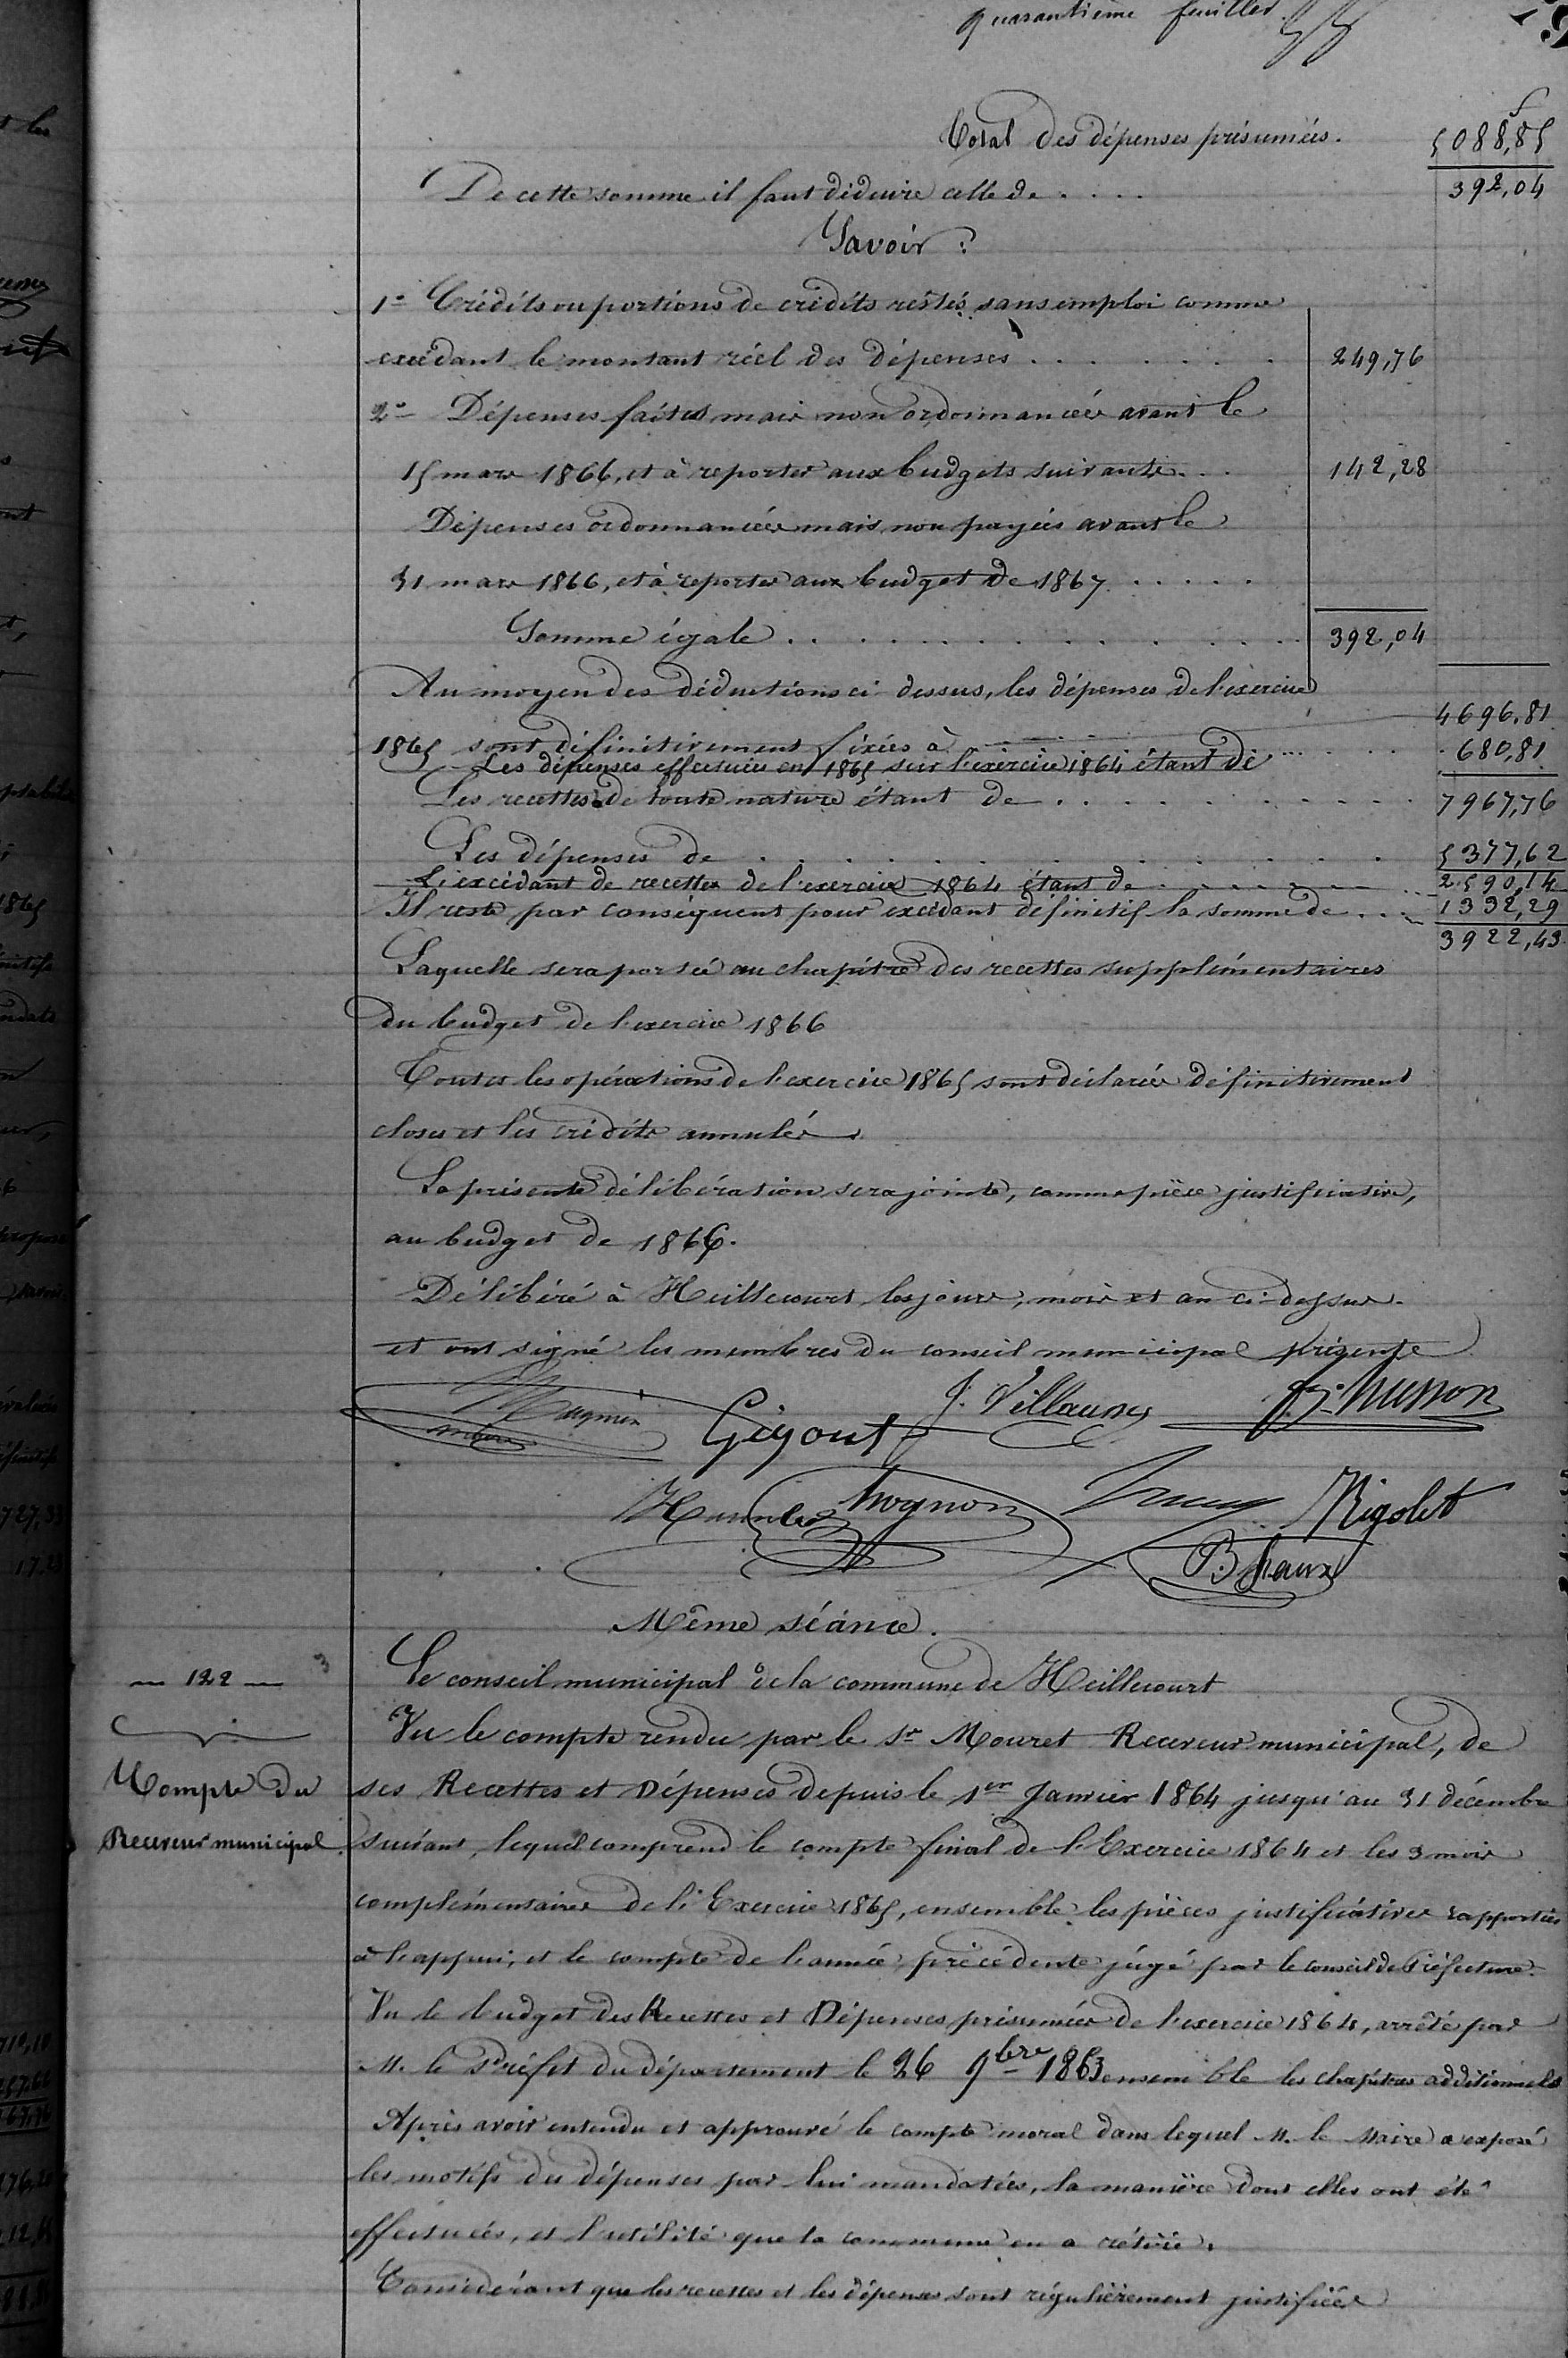 quarantième feuillet.
Total des dépenses présumées. 5088,85
f
De cette somme il faut déduire celle de .... 392,04
Savoir :
1° Crédits ou portions de crédits restés sans emploi comme
excédant le montant réel des dépenses ....... 249,76
2° Dépenses faites mais non ordonnancées avant le
15 mars 1866, et à reporter aux budgets suivants ... 142,28
Dépenses ordonnancées mais non payées avant le
31 mars 1866, et à reporter aux budget de 1867 .....
Somme égale ............ 392,04
Au moyen des déductions ci-dessus, les dépenses de l'exercice
1865 sont définitivement fixées à 4696,81
Les dépenses effectuées en 1865 sur l'exercice 1864 étant de ...... 680,81
Les recettes de toute nature étant de ......... 7967,76
Les dépenses de ........... 5377,62
L'excédant de recettes de l'exercice 1864 étant de ....... 2590,14
Il reste par conséquent pour excédant définitif la somme de .... 1332,29
3922,43
Laquelle sera portée au chapitre des recettes supplémentaires
du budget de l'exercice 1866
Toutes les opérations de l'exercice 1865 sont déclarées définitivement
closes et les crédits annulés
La présente délibération sera jointe, comme pièce justificative,
au budget de 1866.
Délibéré à Heillecourt, les jour, mois et an ci-dessus.
et ont signé les membres du conseil municipal présents
Gigout J. Villaume Husson
Thognon Rigolet
Même séance.
— 122 —
3
Compte du
Receveur municipal.
Le conseil municipal de la commune de Heillecourt
Vu le compte rendu par le Sr Mouret Receveur municipal, de
ses Recettes et Dépenses depuis le 1er Janvier 1864 jusqu'au 31 décembre
suivant, lequel comprend le compte final de l'Exercice 1864 et les 3 mois
complémentaires de l'Exercice 1865, ensemble les pièces justificatives rapportées
à l'appui, et le compte de l'année précédente jugé par le conseil de Préfecture.
Vu le budget des Recettes et Dépenses présumées de l'exercice 1864, arrêté par
M. le Préfet du département le 26 9bre 1863 ensemble les chapitres additionnels
Après avoir entendu et approuvé le compte moral dans lequel M. le Maire a exposé
les motifs des dépenses par lui mandatées, la manière dont elles ont été
effectuées, et l'utilité que la commune en a retirée.
Considérant que les recettes et les dépenses sont régulièrement justifiées